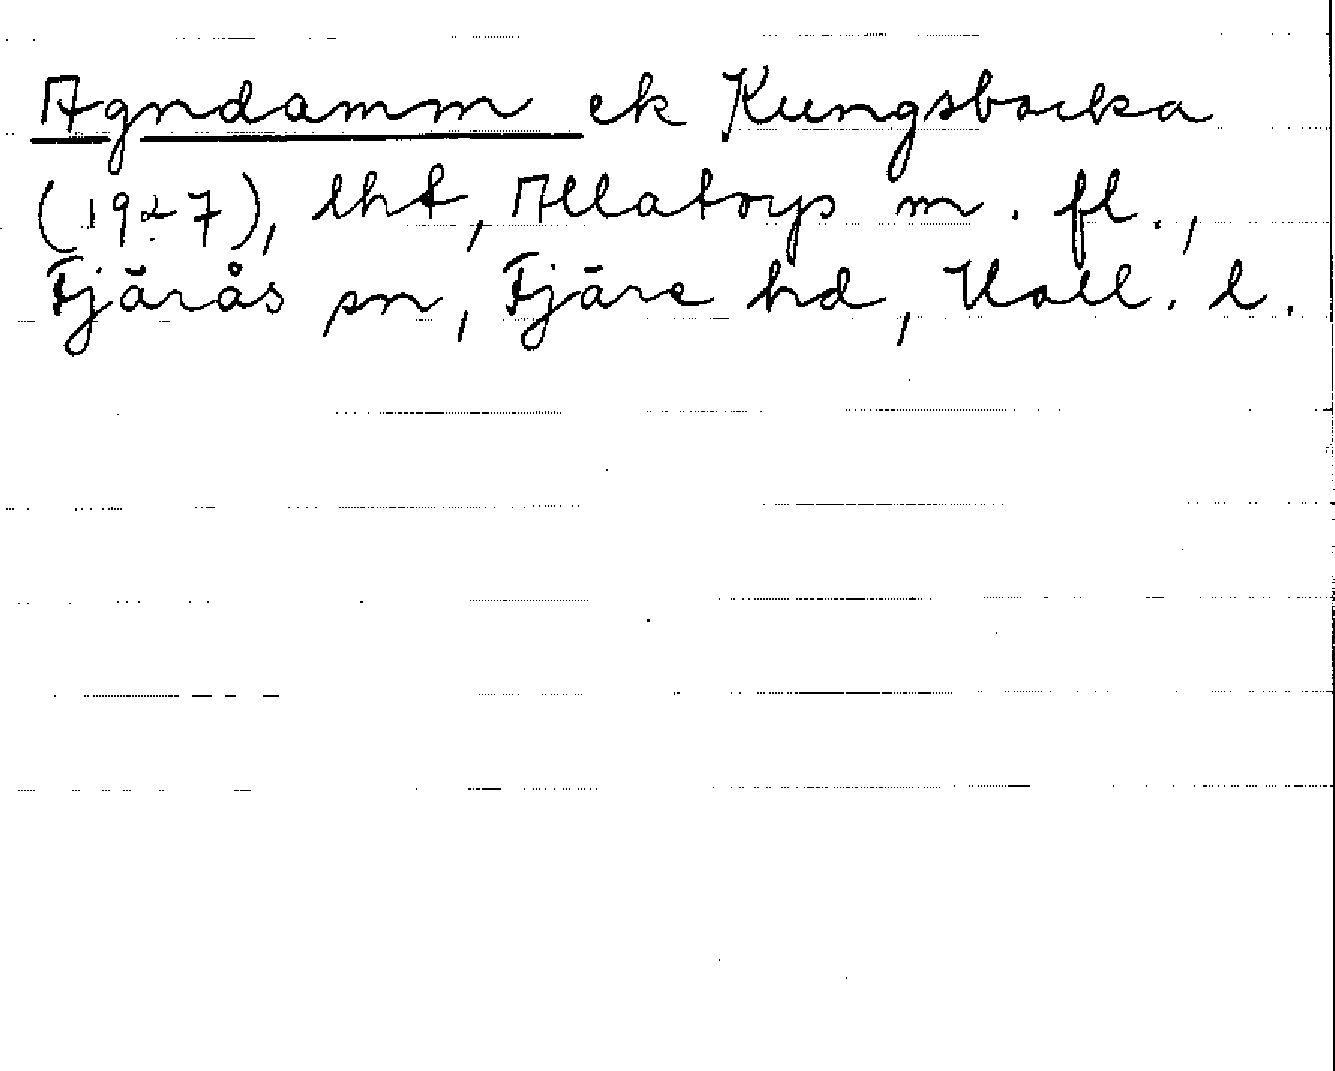 Agndamm ek Kungsbacka
(1927), lht, Allatorp m. fl.,
Fjärås sn, Fjäre hd, Hall. l.